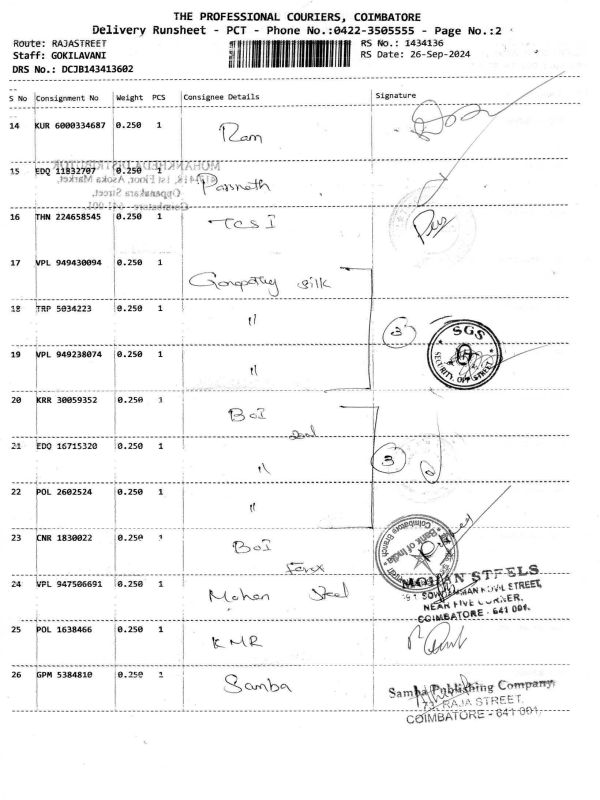 THE PROFESSIONAL COURIERS, COIMBATORE
Delivery Runsheet - PCT - Phone No.:0422-3505555 - Page No.:2
Route: RAJASTREET RS No.: 1434136
Staff: GOKILAVANI RS Date: 26-Sep-2024
DRS No.: DCJB143413602
S No Consignment No Weight PCS Consignee Details Signature
14 KUR 6000334687 0.250 1 Ram
15 EDQ 11832707 0.250 1 Parsnath
MOHANKHEDA DISTRIBUTOR
1st Floor, Asoka Market,
Oppanakara Street,
Coimbatore - 641 001
16 THN 224658545 0.250 1 TCS I
17 VPL 949430094 0.250 1 Ganapathy silk
18 TRP 5034223 0.250 1 "
3
SGS
SECURITY, OPP STREET
19 VPL 949238074 0.250 1 "
20 KRR 30059352 0.250 1 BOI
21 EDQ 16715320 0.250 1 "
3
22 POL 2602524 0.250 1 "
23 CNR 1830022 0.250 1 BOI
Forex
Bank of India
Coimbatore Branch
24 VPL 947506691 0.250 1 Mohan Steel
MOHAN STEELS
STREET,
NEAR FIVE CORNER,
COIMBATORE - 641 001.
25 POL 1638466 0.250 1 KMR
26 GPM 5384810 0.250 1 Samba
Samba Publishing Company
73, RAJA STREET,
COIMBATORE - 641 001.